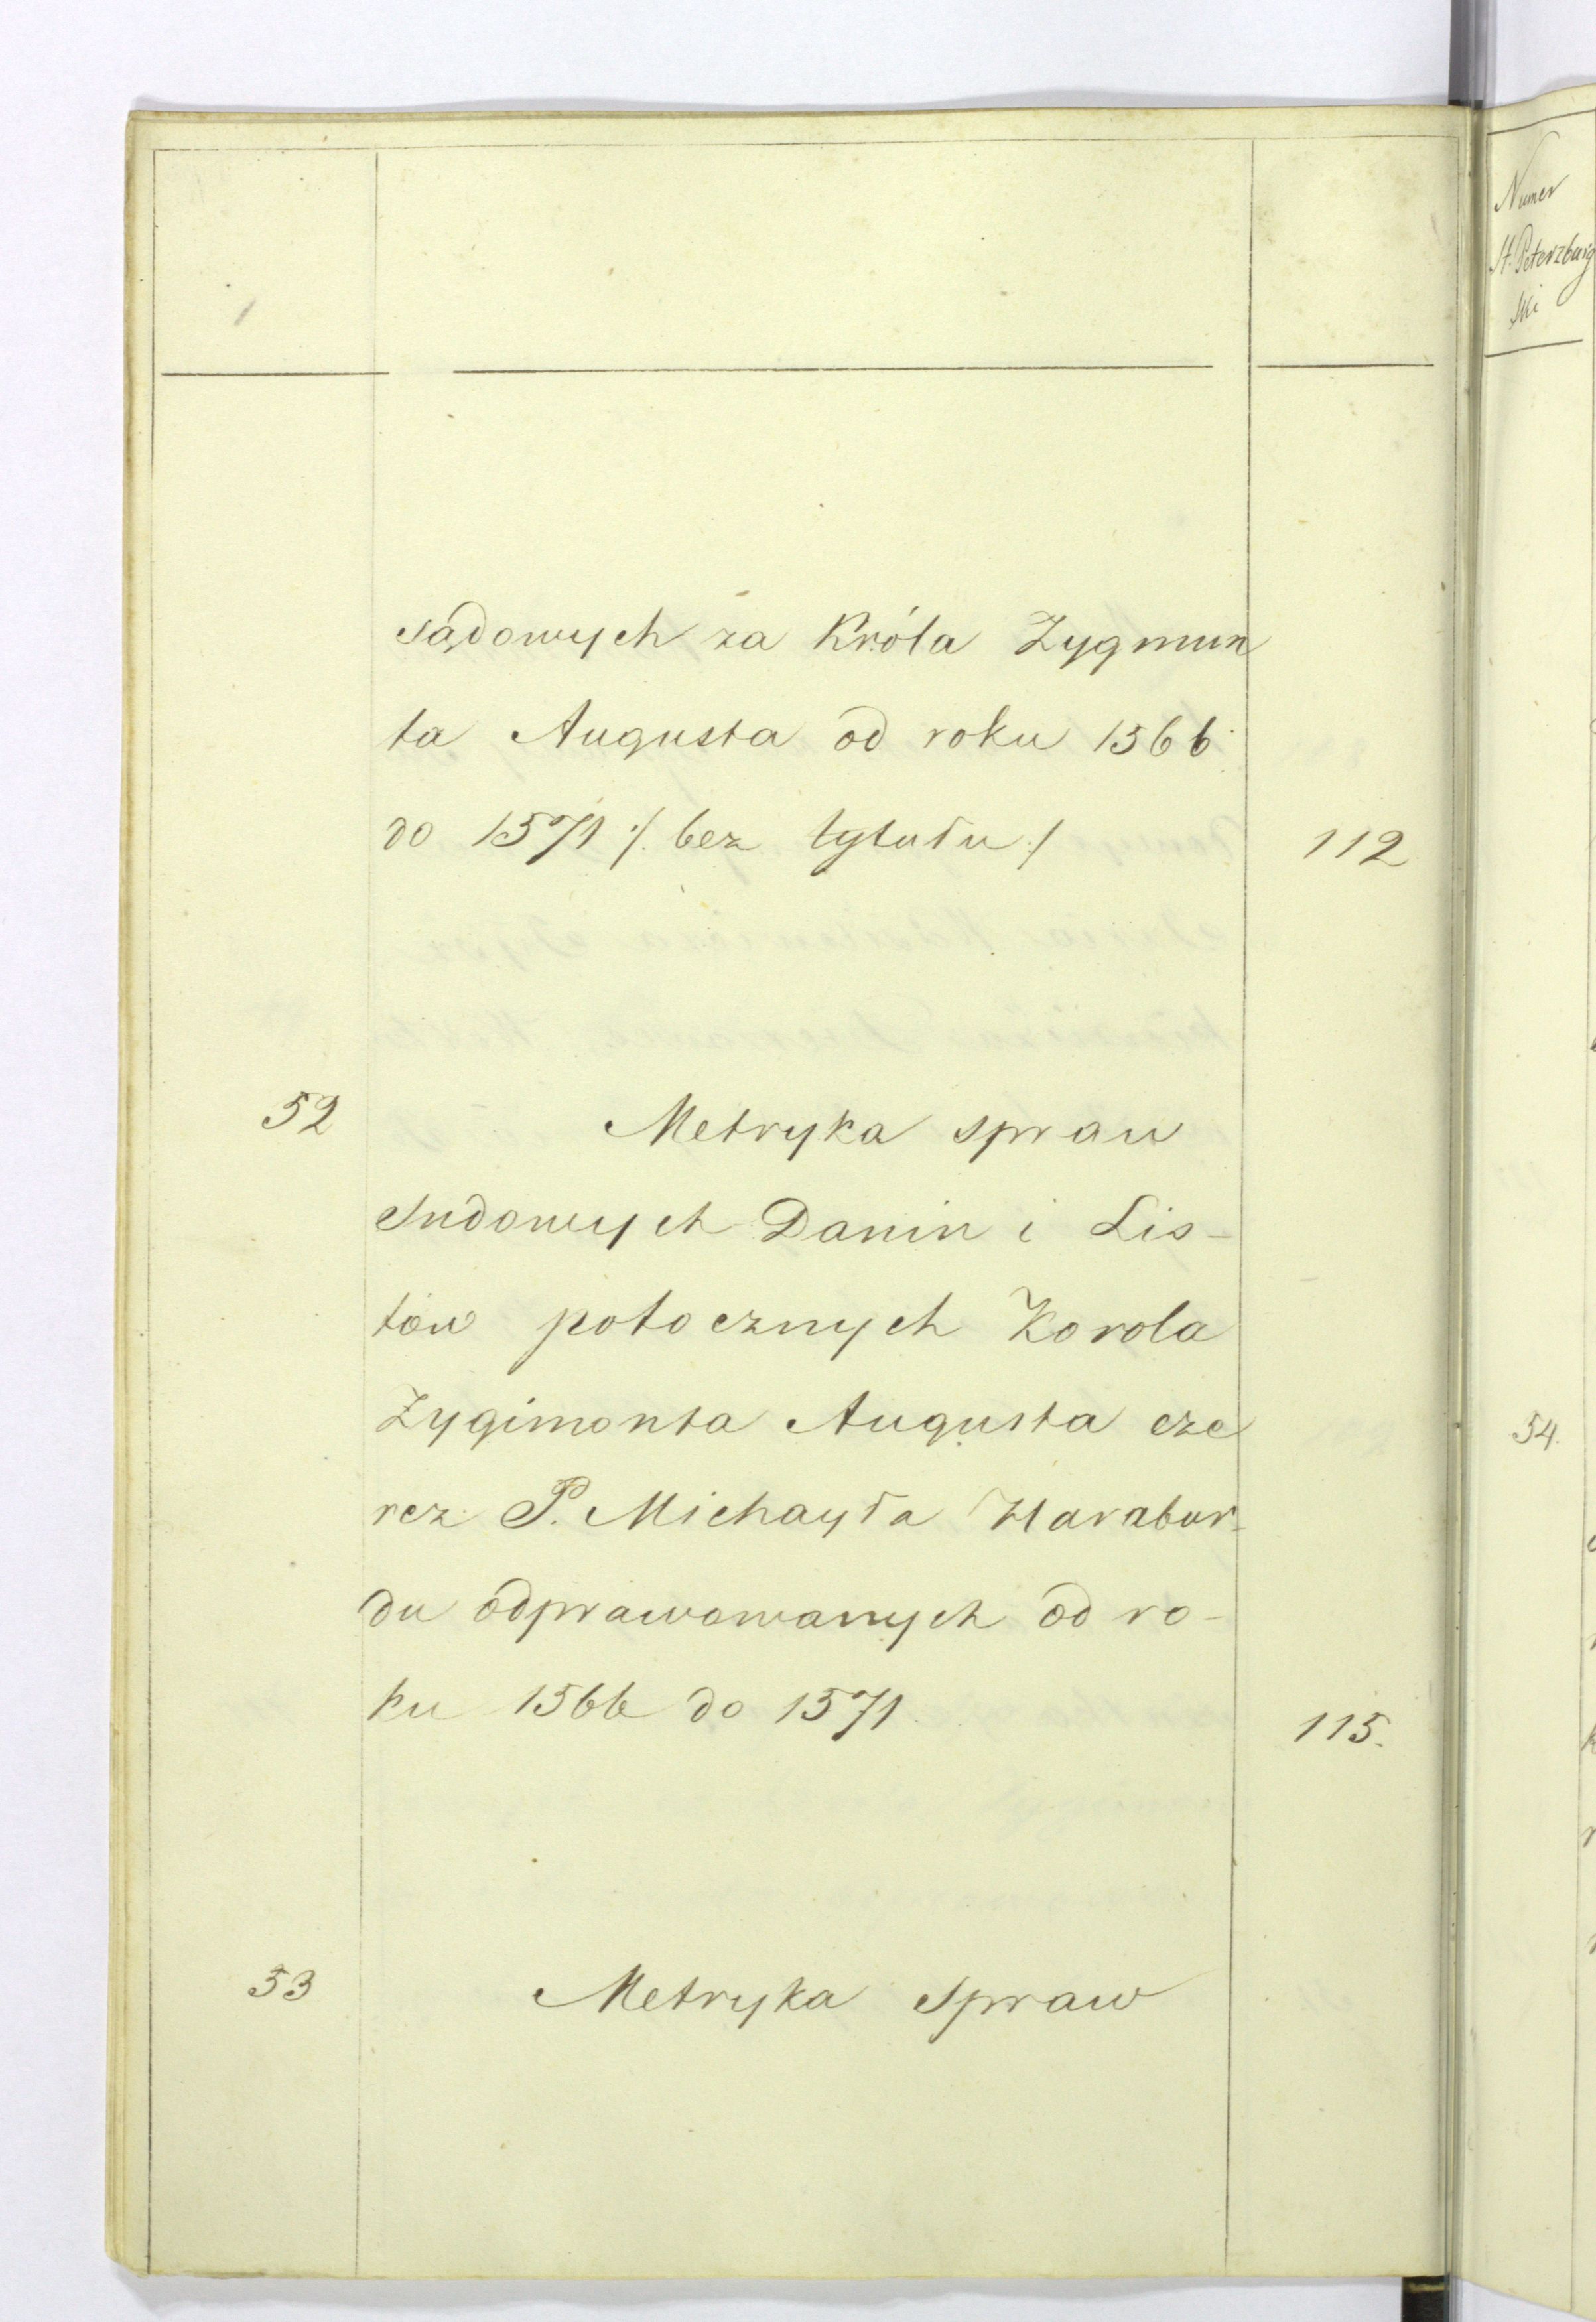 sądowych za Króla Zygmun
ta Augusta od roku 1566
do 1571 /. bez tytułu ./
112
52
Metryka spraw
Sudowych Danin i Lis-
tów potocznych Korola
Zygimonta Augusta cze
rez P. Michayła Harabur-
du odprawowanych od ro-
ku 1566 do 1571
115.
53
Metryka Spraw
Numer
St. Peterzburg
ski
54.